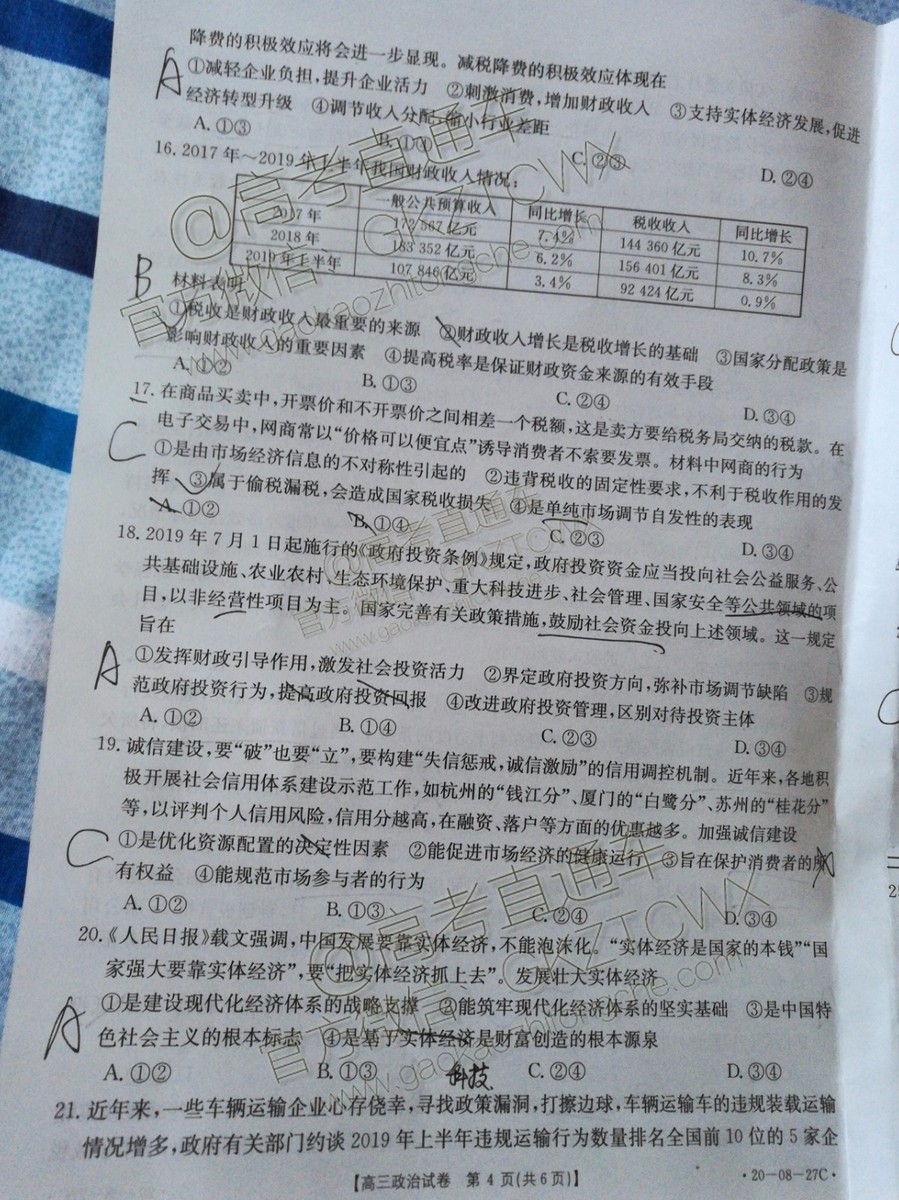 降费的积极效应将会进一步显现。减税降费的积极效应体现在
A
①减轻企业负担,提升企业活力 ②刺激消费,增加财政收入 ③支持实体经济发展,促进
经济转型升级 ④调节收入分配,缩小行业差距
A.①③ B.①④ C.②③ D.②④
16.2017年~2019年上半年我国财政收入情况:
一般公共预算收入 同比增长 税收收入 同比增长
2017年 172 567亿元 7.4% 144 360亿元 10.7%
2018年 183 352亿元 6.2% 156 401亿元 8.3%
2019年上半年 107 846亿元 3.4% 92 424亿元 0.9%
B
材料表明
①税收是财政收入最重要的来源 ②财政收入增长是税收增长的基础 ③国家分配政策是
影响财政收入的重要因素 ④提高税率是保证财政资金来源的有效手段
A.①② B.①③ C.②④ D.③④
17.在商品买卖中,开票价和不开票价之间相差一个税额,这是卖方要给税务局交纳的税款。在
电子交易中,网商常以“价格可以便宜点”诱导消费者不索要发票。材料中网商的行为
C
①是由市场经济信息的不对称性引起的 ②违背税收的固定性要求,不利于税收作用的发
挥 ③属于偷税漏税,会造成国家税收损失 ④是单纯市场调节自发性的表现
A.①② B.①④ C.②③ D.③④
18.2019年7月1日起施行的《政府投资条例》规定,政府投资资金应当投向社会公益服务、公
共基础设施、农业农村、生态环境保护、重大科技进步、社会管理、国家安全等公共领域的项
目,以非经营性项目为主。国家完善有关政策措施,鼓励社会资金投向上述领域。这一规定
旨在
A
①发挥财政引导作用,激发社会投资活力 ②界定政府投资方向,弥补市场调节缺陷 ③规
范政府投资行为,提高政府投资回报 ④改进政府投资管理,区别对待投资主体
A.①② B.①④ C.②③ D.③④
19.诚信建设,要“破”也要“立”,要构建“失信惩戒,诚信激励”的信用调控机制。近年来,各地积
极开展社会信用体系建设示范工作,如杭州的“钱江分”、厦门的“白鹭分”、苏州的“桂花分”
等,以评判个人信用风险,信用分越高,在融资、落户等方面的优惠越多。加强诚信建设
C
①是优化资源配置的决定性因素 ②能促进市场经济的健康运行 ③旨在保护消费者的所
有权益 ④能规范市场参与者的行为
A.①② B.①③ C.②④ D.③④
20.《人民日报》载文强调,中国发展要靠实体经济,不能泡沫化。“实体经济是国家的本钱”“国
家强大要靠实体经济”,要“把实体经济抓上去”。发展壮大实体经济
A
①是建设现代化经济体系的战略支撑 ②能筑牢现代化经济体系的坚实基础 ③是中国特
色社会主义的根本标志 ④是基于实体经济是财富创造的根本源泉
A.①② B.①③ 科技 C.②④ D.③④
21.近年来,一些车辆运输企业心存侥幸,寻找政策漏洞,打擦边球,车辆运输车的违规装载运输
情况增多,政府有关部门约谈2019年上半年违规运输行为数量排名全国前10位的5家企
【高三政治试卷 第4页(共6页)】 ·20-08-27C·
@高考直通车
官方微信:GKZTCWX
www.gaokaozhitongche.com
@高考直通车
官方微信:GKZTCWX
www.gaokaozhitongche.com
@高考直通车
官方微信:GKZTCWX
www.gaokaozhitongche.com